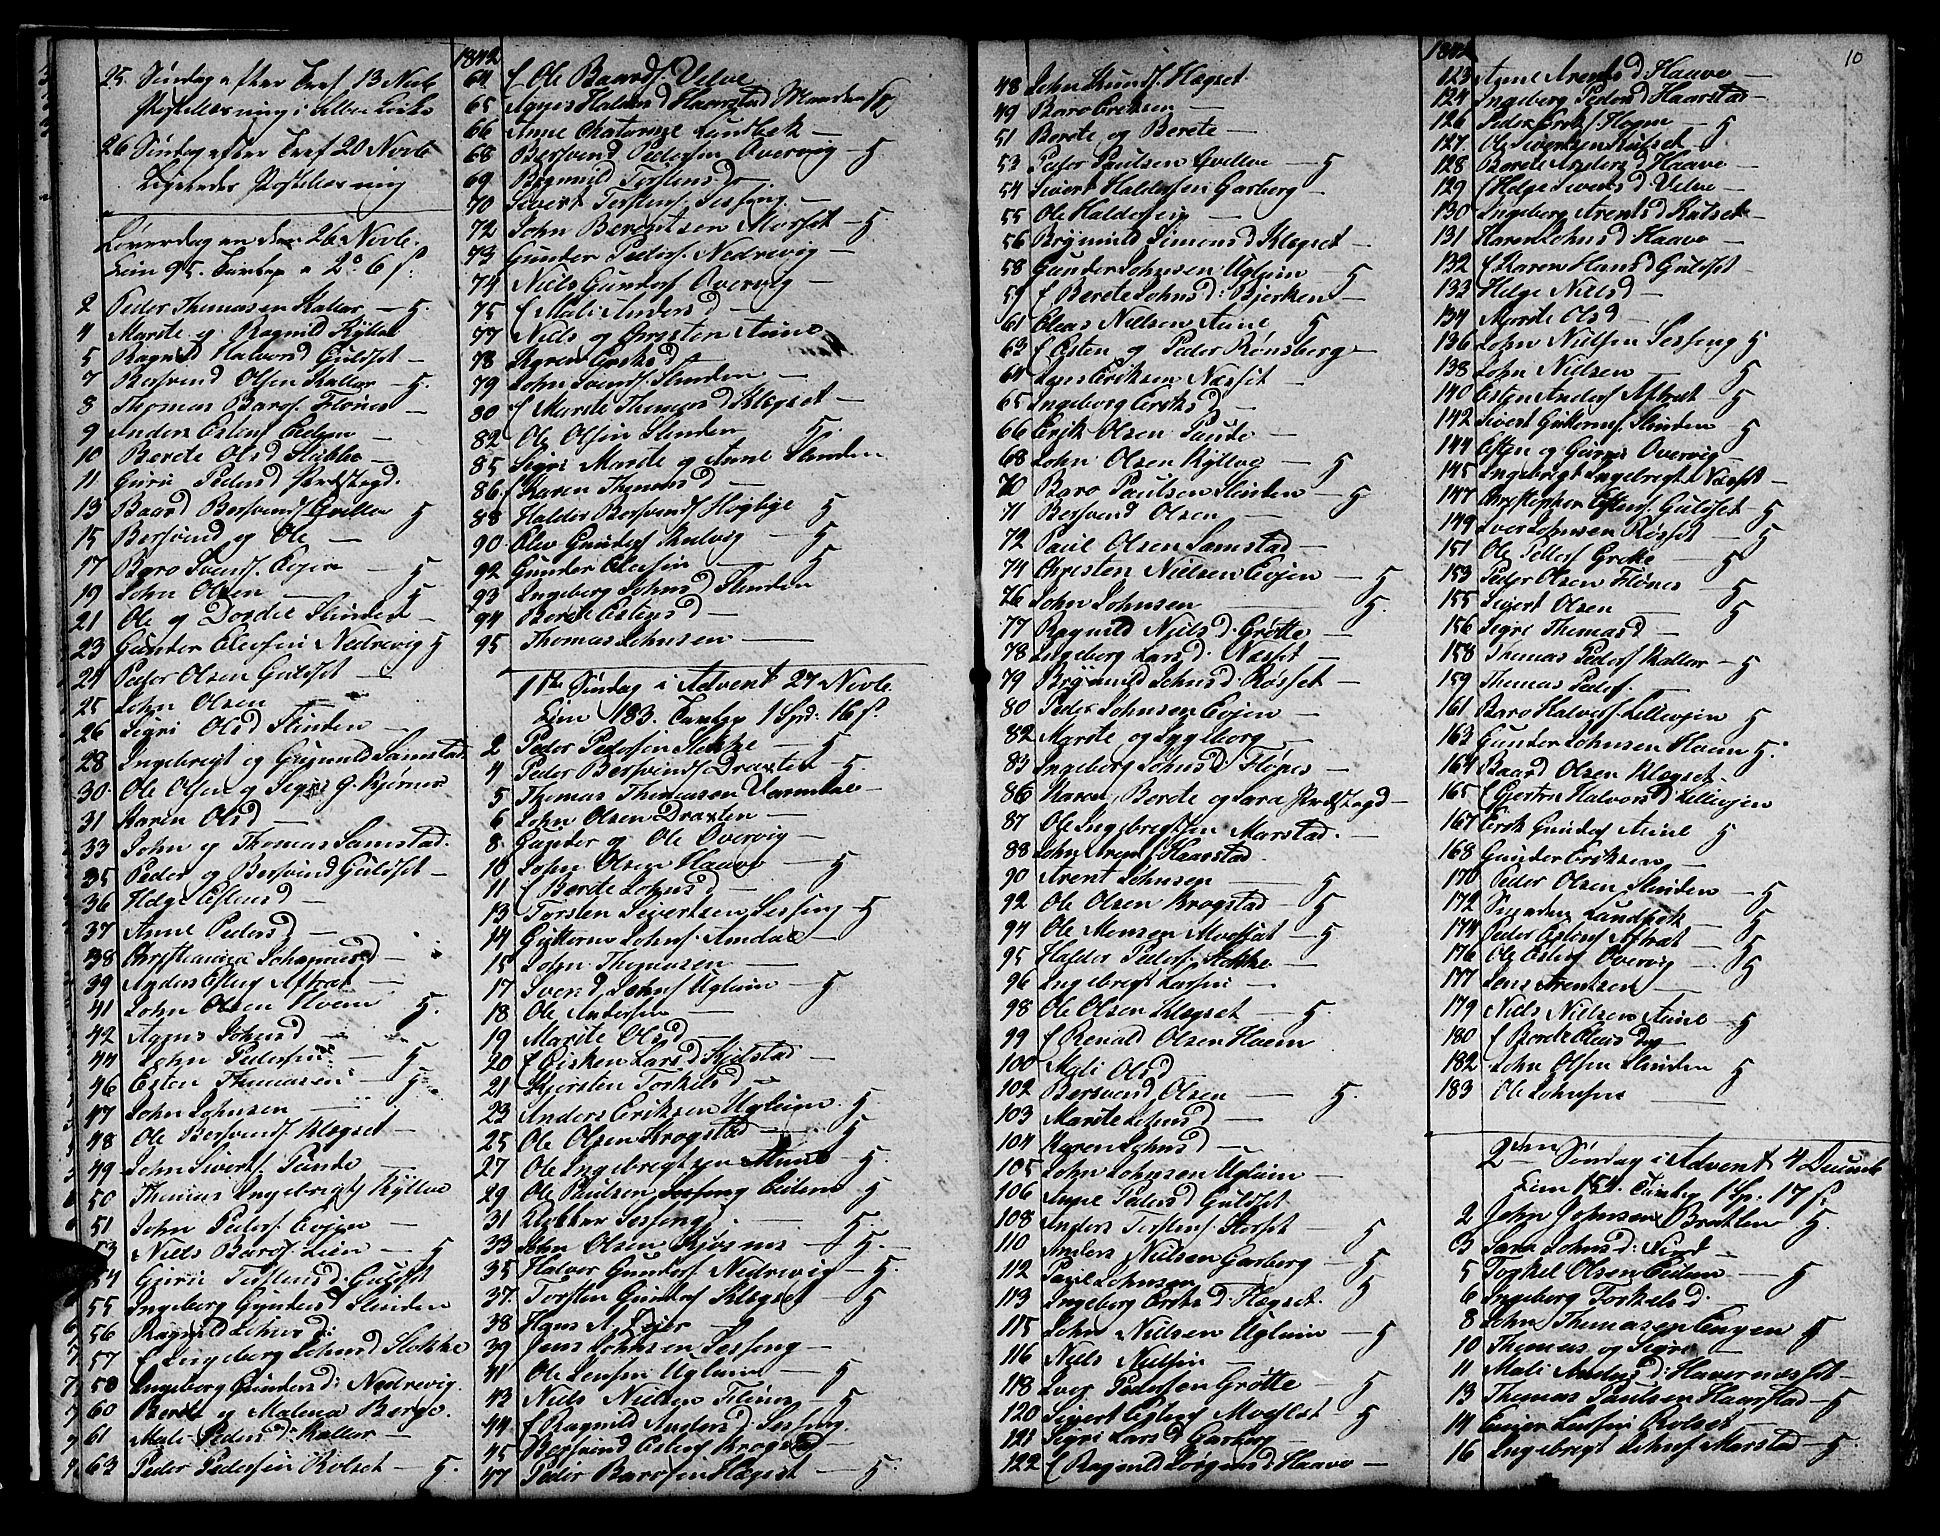 25 Søndag efter Tref 13 Novb
Postillesning i Selbo Kirke
26 Søndag efter Tref 20 Novb
Ligeledes Postillesning
Løverdag den 26 Novb.
2 Peder Thomasen Kallar — 5.
4 Marite og Ragnild Kyllae
5 Ragnild Halvorsd Guldset —
7 Bersvend Olsen Kallar — 5.
8 Thomas Barosf. Flønes —
9 Anders Estens —
10 Berete Olsd Stubbe —
11 Guru Pedersd Præstegd.
13 Baard Bersvendsf Qvilloe 5
15 Bersvend og Ole —
17 Baro Svends. Evjen — 5
19 John Olsen — 5
21 Ole og Dordie Slindest —
23 Gunder Olessen Nedrevig 5
24 Peder Olsen Guldset —
25 John Olsen
26 Sigri Olsd Slinden —
28 Ingebrigt og Samstad
30 Ole Olsen og Sigri G. Kjørnes
31 Karen Olsd —
33 John og Thomas Samstad.
35 Peder og Bersvend Guldset —
36 Helge Estensd —
37 Anne Pedersd —
38 Christianna Johannesd —
39 Anders Estens Aftret —
41 John Olsen Hvem 5.
42 Agnes Johnsd —
44 John Pedersen — 5
46 Esten Thomasen — 5
47 John Johnsen —
48 Ole Bersvends. Klegset —
49 John Siverts. Punde —
50 Thomas Ingebrigts Kyllae
51 John Peders. Evjen —
53 Niels Baros. Lien — 5
54 Guru Torstensd. Guldset
55 Ingeborg Gundersd Slinden
56 Ragnild Johnsd:
57 f Ingeborg Johnsd Stokke
58 Ingeborg Gundersd: Nedrevig.
60 Berete og Malena Berge.
61 Mali Pedersd: Kallar —
63 Peder Pedersen Rolset — 5.
1842
64 f Ole Baards. Velve
65 Agnes Haldosd Haarstad
66 Anne Catarine Lundbek —
68 Bersvend Pedersen Overvig — 5
69 Brynild Torstensdr —
70 Sivert Torstens. Sesseng. —
72 John Berentsen Morset — 5
73 Gunder Peders. Nedrevig —
74 Niels Gundos Overvig —
75 f Mali Andersd —
77 Niels og Christen Aune
78 Karen Eriksd —
79 John Svends. Slinden —
80 f Marite Thomasd Klegset —
82 Ole Olsen Slinden 5.
85 Sigri Marite og Anne Slinden
86 f Karen Thomasd —
88 Haldor Bersvends Høgbye 5
90 Olev Gundos Kulvig — 5
92 Gunder Olessen — 5
93 Ingeborg Johnsd Slinden
94 Berete Estensd —
95 Thomas Johnsen —
1te Søndag i Advent 27 Novb.
2 Peder Pedersen Stokke — 5
4 Peder Bersvends Draxten — 5.
5 Thomas Thomasen —
6 John Olsen Draxten —
8 Gunder og Ole Overvig —
10 John Olsen Haave — 5
11 f Berete Johnsd —
13 Torsten Sivertsen Sesseng — 5
14 Guttorm Johns. Amdal —
15 John Thomasen —
17 Svend Johns Uglum — 5
18 Ole Andersen —
19 Marite Olsd —
20 f Larsd Kjelstad —
21 Kjersten Torkelsd —
23 Anders Eriksen Uglum 5
25 Ole Olsen Krogstad — 5.
27 Ole Ingebrigtsen — 5.
29 Ole Paulsen Eidem 5
31 Klokker Sesseng. — 5.
33 John Olsen Kjøsnes — 5.
35 Halvor Gundos Nedrevig — 5.
37. Torsten Gundos Klegset — 5
38 Hans A.
39 Jens Johnsen Sesseng —
41 Ole Jensen Uglum — 5
43 Niels Nielsen Flønes — 5
44 f Ragnild Andersd. Sesseng.
45 Bersvend Estens Krogstad —
47 Peder Barosen Hegset — 5.
48 John Hegset.
49 Baro Eriksen —
51 Berete og Berete —
53 Peder Paulsen Qvelloe — 5
54 Sivert Haldorsen Garberg —
55 Ole Haldorsen —
56 Brynild Simonsd Klegset —
58 Gunder Johnsen Uglum — 5
59 f Berete Johnsd: Bjerken —
61 Eleas Nielsen Aune 5
63 f Esten og Peder Rønsberg —
64 Lars Eriksen Næsset —
65 Ingeborg Eriksd —
66 Erik Olsen Punde —
68 John Olsen Kyllae — 5
70 Baro Paulsen Slinden — 5
71 Bersvend Olsen —
72 Paul Olsen Samstad —
74 Christen Nielsen Evjen — 5
76 John Johnsen — 5.
77 Ragnild Nielsd. Grøtte —
78 Ingeborg Larsd. Næsset —
79 Brynild Johnsd Rosset —
80 Peder Johnsen Evjen —
82 Marite og Ingeborg —
83 Ingeborg Johnsd Flønes —
86 Karen, Berete og Sara Præstegd —
87 Ole Ingebrigtsen Marstad. —
88 John Arens Haarstad.
90 Arent Johnsen — 5
92 Ole Olsen Krogstad — 5
94 Ole Monsen Moeslet — 5
95 Haldor Peders. Stokke —
96 Ingebrigt Larsen —
98 Ole Olsen Klegset — 5.
99 f Renald Olsen Hvem
100 Mali Olsd —
102 Bersvend Olsen — 5.
103 Marite Johnsd —
104 Karen Johnsd —
105 John Johnsen Uglum —
106 Anne Pedersd Guldset
108 Anders Torstens. Storset — 5
110 Anders Nielsen Garberg — 5
112 Paul Johnsen — 5
113 Ingeborg Eriksd. Hegset.
115 John Nielsen Uglum — 5
116 Niels Nielsen —
118 Iver Pedersen Grøtte — 5
120 Sivert Estens Moeslet — 5
121 Sigri Larsd Garberg —
122 f Ragnild Haave —
1842
10
123 Anne Arentsd Haave —
124 Ingeborg Pedersd Haarstad —
126 Peder Eriks. Hogen — 5
127 Ole Sivertsen Kulset —
128 Berete Andersd Haave —
129 f Helge Sivertsd Velve —
130 Ingeborg Arentsd Kulset —
131 Karen Johnsd Haave —
132 f Karen Hansd Guldset —
133 Helge Nielsd —
134 Marite Olsd —
136 John Nielsen Sesseng 5
138 John Nielsen — 5
140 Esten Anders Aftret 5
142 Sivert Guttorms. Slinden 5
144 Esten og Guru Overvig —
145 Ingebrigt Ingebrigts Næsset —
147 Christopher Estens. Guldset — 5
149 Iver Johnsen Røsset — 5
151 Ole Pellers Grøtte — 5
153 Peder Olsen Flønes 5
155 Sivert Olsen — 5
156 Sigri Thomasd —
158 Thomas Peders Kallar — 5
159 Thomas Peders. —
161 Baro Halvos. Lilleevjen 5
163 Gunder Johnsen Hvem 5.
164 Baard Olsen Klegset.
165 f Gjertru Halvorsd Lilleevjen
167 Erik Gundos Aune 5
168 Gunder Eriksen —
170 Peder Olsen Slinden — 5
172 Lundbek — 5
174 Peder Estens Aftret — 5
176 Ole Estens Overvig — 5
177 Jens Arentsen —
179 Niels Nielsen Aune — 5
180 f Berete Oleusdag
182 John Olsen Slinden 5
183 Ole Johnsen —
2den Søndag i Advent 4 Decemb
2 John Johnsen Bratlen 5.
3 Sara Johnsd: —
5 Torkel Olsen Eidem — 5
6 Ingeborg Torkelsd.
8 John Thomasen Engen 5
10 Thomas og Sigri —
11 Mali Andersd: Havernesset —
13 Thomas Paulsen Haarstad — 5
14 Einer Larsen Rolset —
16 Ingebrigt Johns Marstad — 5.